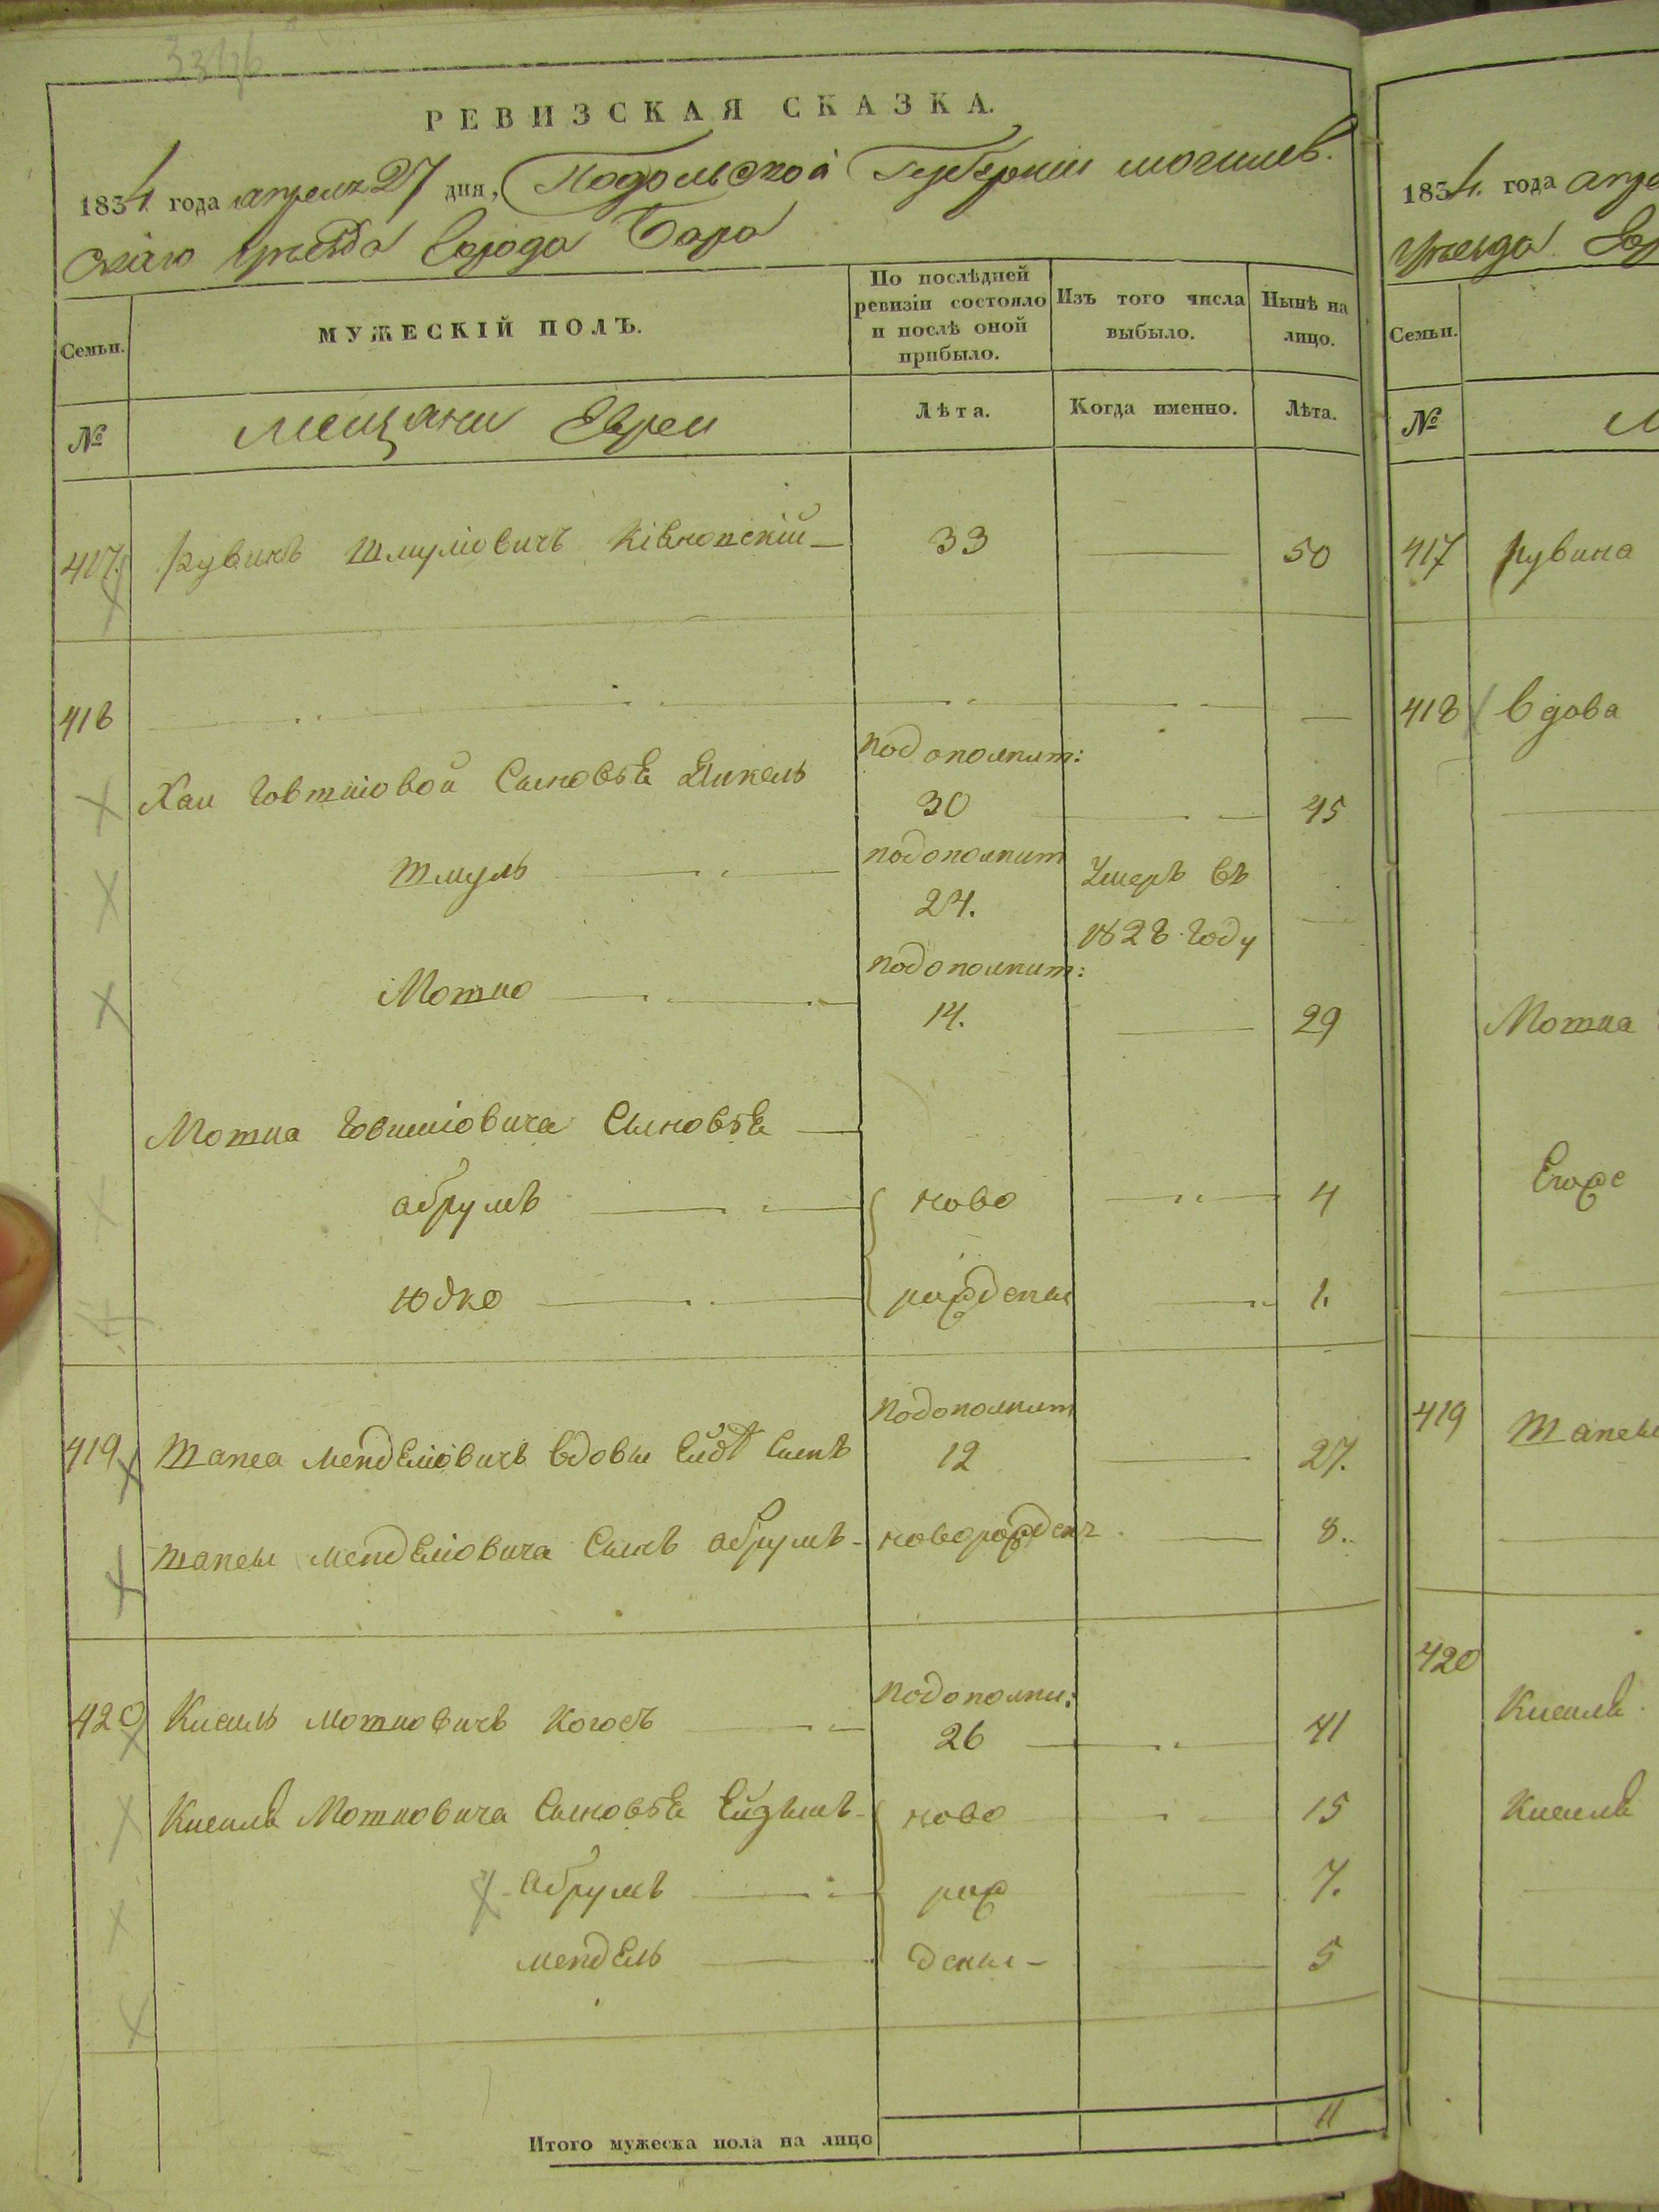 РЕВИЗСКАЯ СКАЗКА.
1834 года апреля 27 дня, Подольской Губернии могилев.
скаго уѣзда Города Бара
Семьи.
МУЖЕСКІЙ ПОЛЪ.
По послѣдней ревизіи состояло и послѣ оной прибыло.
Изъ того числа выбыло.
Нынѣ на лицо.
№
Мещане Евреи
Лѣта.
Когда именно.
Лѣта.
417. Рувинъ Шмуліовичъ 33 50
418
подополнит:
Хаи Говшіовой Сыновья Янкель 30 45
Шмуль подополнит 24. Умеръ въ 1828 году
Мошко подополнит: 14. 29
Мошка Говшіовича Сыновья
абрумъ ново 4
юдко рожденые 1.
419 Шапса Менделіовичъ вдовы сынъ подополнит 12 27.
Шапсы Менделіовича Сынъ абрумъ новорожден 8.
420 Кисиль Мошковичъ Когосъ подополни: 26 41
Кисиля Мошковича Сыновья ново 15
абрумъ рож 7.
мендель деные 5
Итого мужеска пола на лицо 11
1834 года апре
Уѣзда
Семьи.
№
417 Рувина
418 Вдова
Мошка
419 Шапсы
420
Кисиля
Кисиля